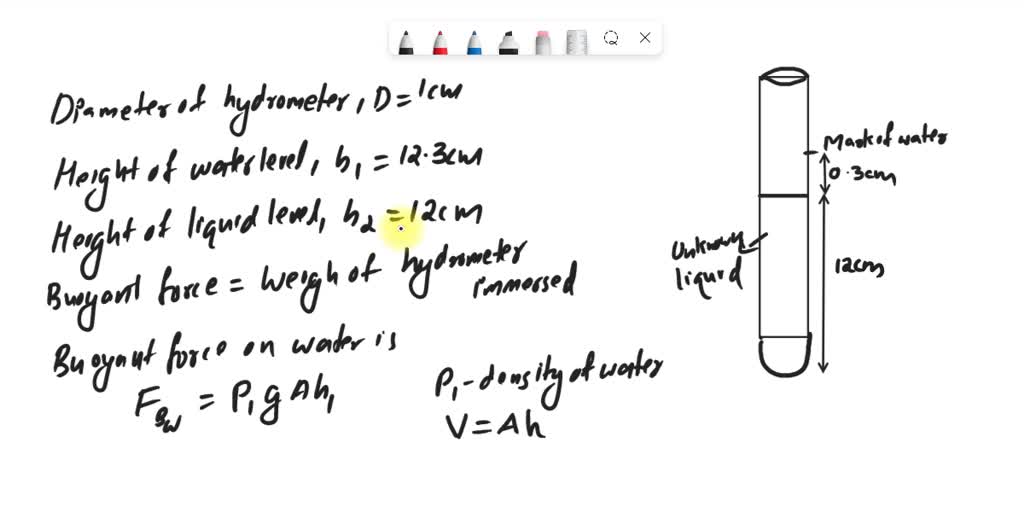 Diameter of hydrometer, D = 1cm
Height of water level, h₁ = 12.3cm
Height of liquid level, h₂ = 12cm
Buoyant force = Weigh of hydrometer
immersed
Buoyant force on water is
F_Bw = ρ₁ g A h₁
ρ₁ - density of water
V = Ah
Mark of water
0.3cm
Unknown
liquid
12cm